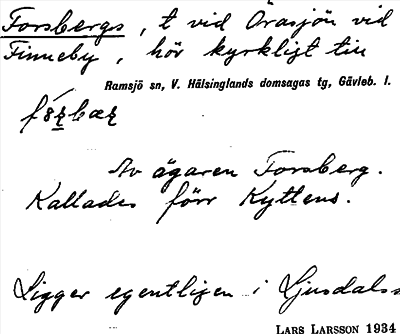 Forsbergs, t vid Orasjön vid
Finneby, hör kyrkligt till
Ramsjö sn, V. Hälsinglands domsagas tg, Gävleb. l.
Av ägaren Forsberg.
Kallades förr Kyttens.
Ligger egentligen i Ljusdals
LARS LARSSON 1934